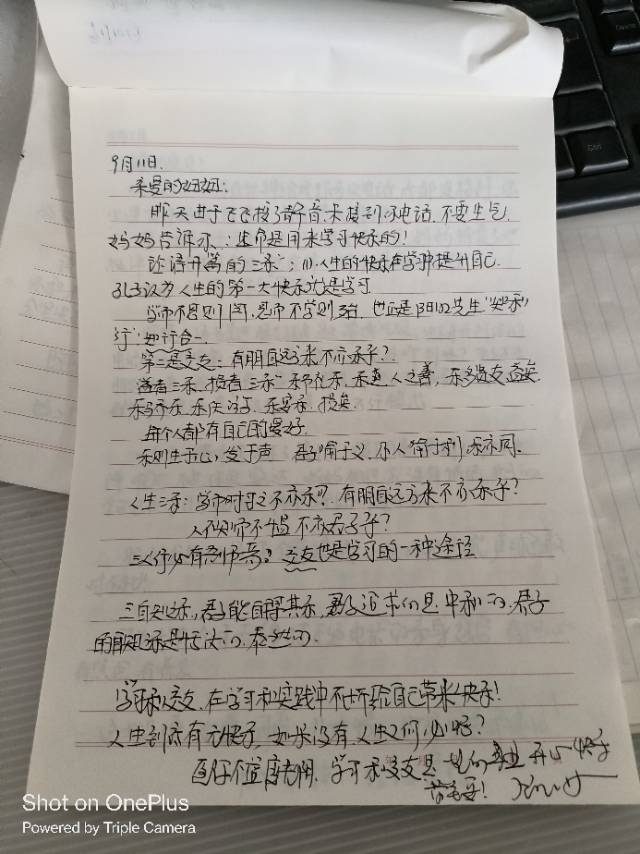 9月11日.
亲爱的妞妞:
昨天由于飞飞按了静音,未接到你电话,不要生气,
妈妈告诉你:生命是用来学习快乐的!
论语开篇的三乐:(1)人生的快乐在学习中提升自己.
孔子认为人生的第一大快乐就是学习
学而不思则罔,思而不学则殆,也正是阳明先生"知
行":知行合一.
第二是交友:有朋自远方来不亦乐乎?
益者三乐,损者三乐 乐节礼乐,乐道人之善,乐多贤友,益矣.
乐骄乐,乐佚游,乐宴乐,损矣.
每个人都有自己的爱好.
乐则生于心,发于声 君子喻于义,小人喻于利,乐亦同.
人生三乐:学而时习之不亦乐?有朋自远方来不亦乐乎?
人不知而不愠不亦君子乎?
三人行必有我师焉?交友也是学习的一种途径
三自知乐,君子能自得其乐,君子追求的是中和的,君子
的是 的,泰然的.
学习和交友,在学习和实践中不断给自己带来快乐!
人生到底有无快乐,如果没有人生又何必呢?
学习和交友是 开心快乐